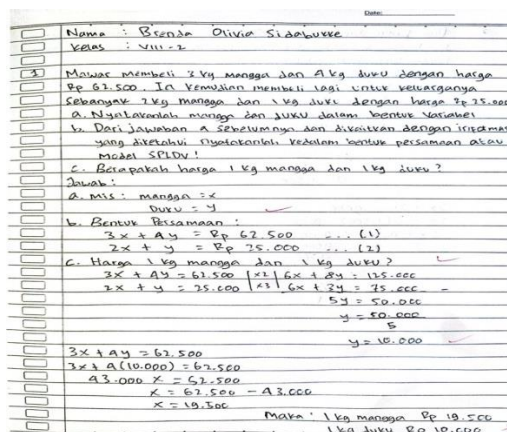 Date:
Nama : Brenda Olivia Sidabukke
Kelas : VIII - 2
1 Mawar membeli 3 kg mangga dan 4 kg duku dengan harga
Rp 62.500. Ia kemudian membeli lagi untuk keluarganya
Sebanyak 2 kg mangga dan 1 kg duku dengan harga Rp 25.000
a. Nyatakanlah mangga dan duku dalam bentuk variabel
b. Dari jawaban a sebelumnya dan dikaitkan dengan informas
yang diketahui nyatakanlah kedalam bentuk persamaan atau
Model SPLDV !
c. Berapakah harga 1 kg mangga dan 1 kg duku ?
Jawab :
a. Mis : mangga = x
Duku = y
b. Bentuk Persamaan :
3x + 4y = Rp 62.500 ... (1)
2x + y = Rp 25.000 ... (2)
c. Harga 1 kg mangga dan 1 kg duku ?
3x + 4y = 62.500 | x2 | 6x + 8y = 125.000
2x + y = 25.000 | x3 | 6x + 3y = 75.000 -
5y = 50.000
y = 50.000
5
y = 10.000
3x + 4y = 62.500
3x + 4(10.000) = 62.500
43.000 x = 62.500
x = 62.500 - 43.000
x = 19.500
Maka : 1 kg mangga Rp 19.500
1 kg duku Rp 10.000